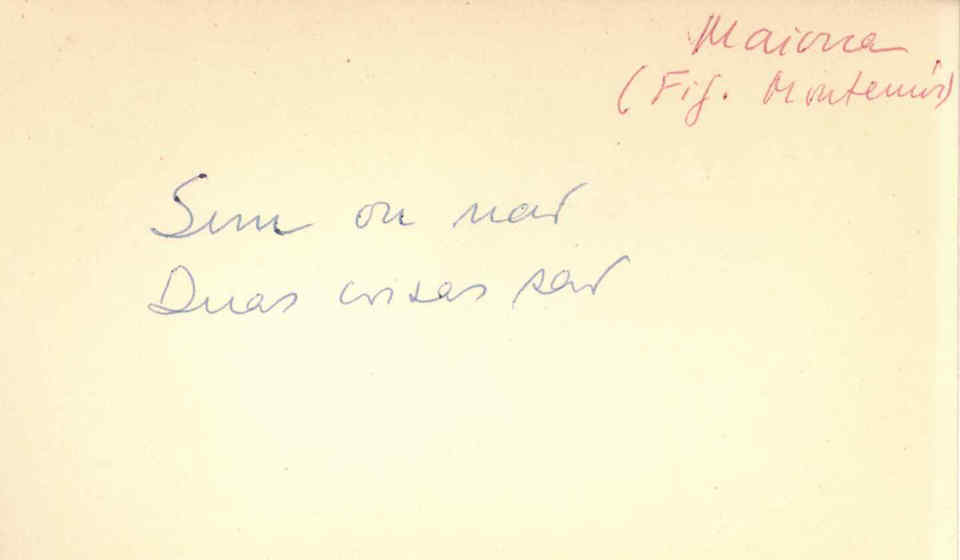 Maiorca
(Fig. Montemór)
Sim ou não
Duas coisas são